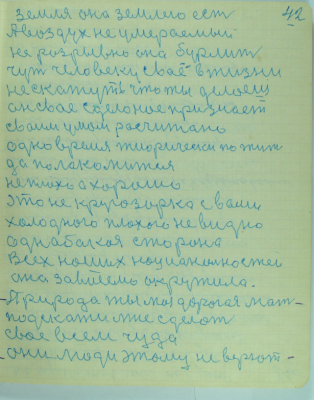 42
земля она землею ест
А воздух не умераемый
не розрывно она бурлит
чут человеку своё в тизни
не скажут что ты делоеш
он свае сделоное признает
своим умом росчитано
одно время тиорически по жит
да полакомится
не плохо а хорошо
Это не кругозорка с вами
холодного плохого не видно
однабакая сторона
Всех наших нацианалностей
она завитем окружила.
-Природа ты моя дорогая мат-
подскажи мне сделат
свое всем чуда
-они люди этому не верют-